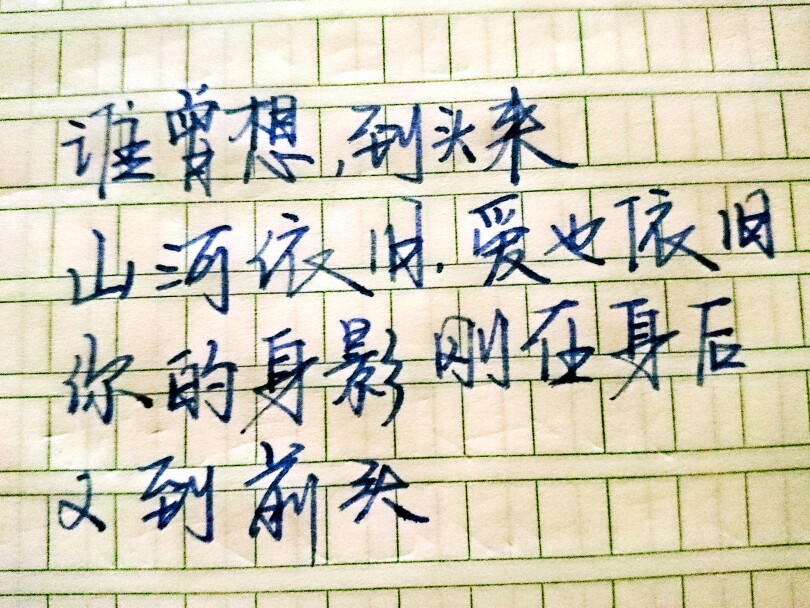 谁曾想,到头来
山河依旧.爱也依旧
你的身影刚在身后
又到前头